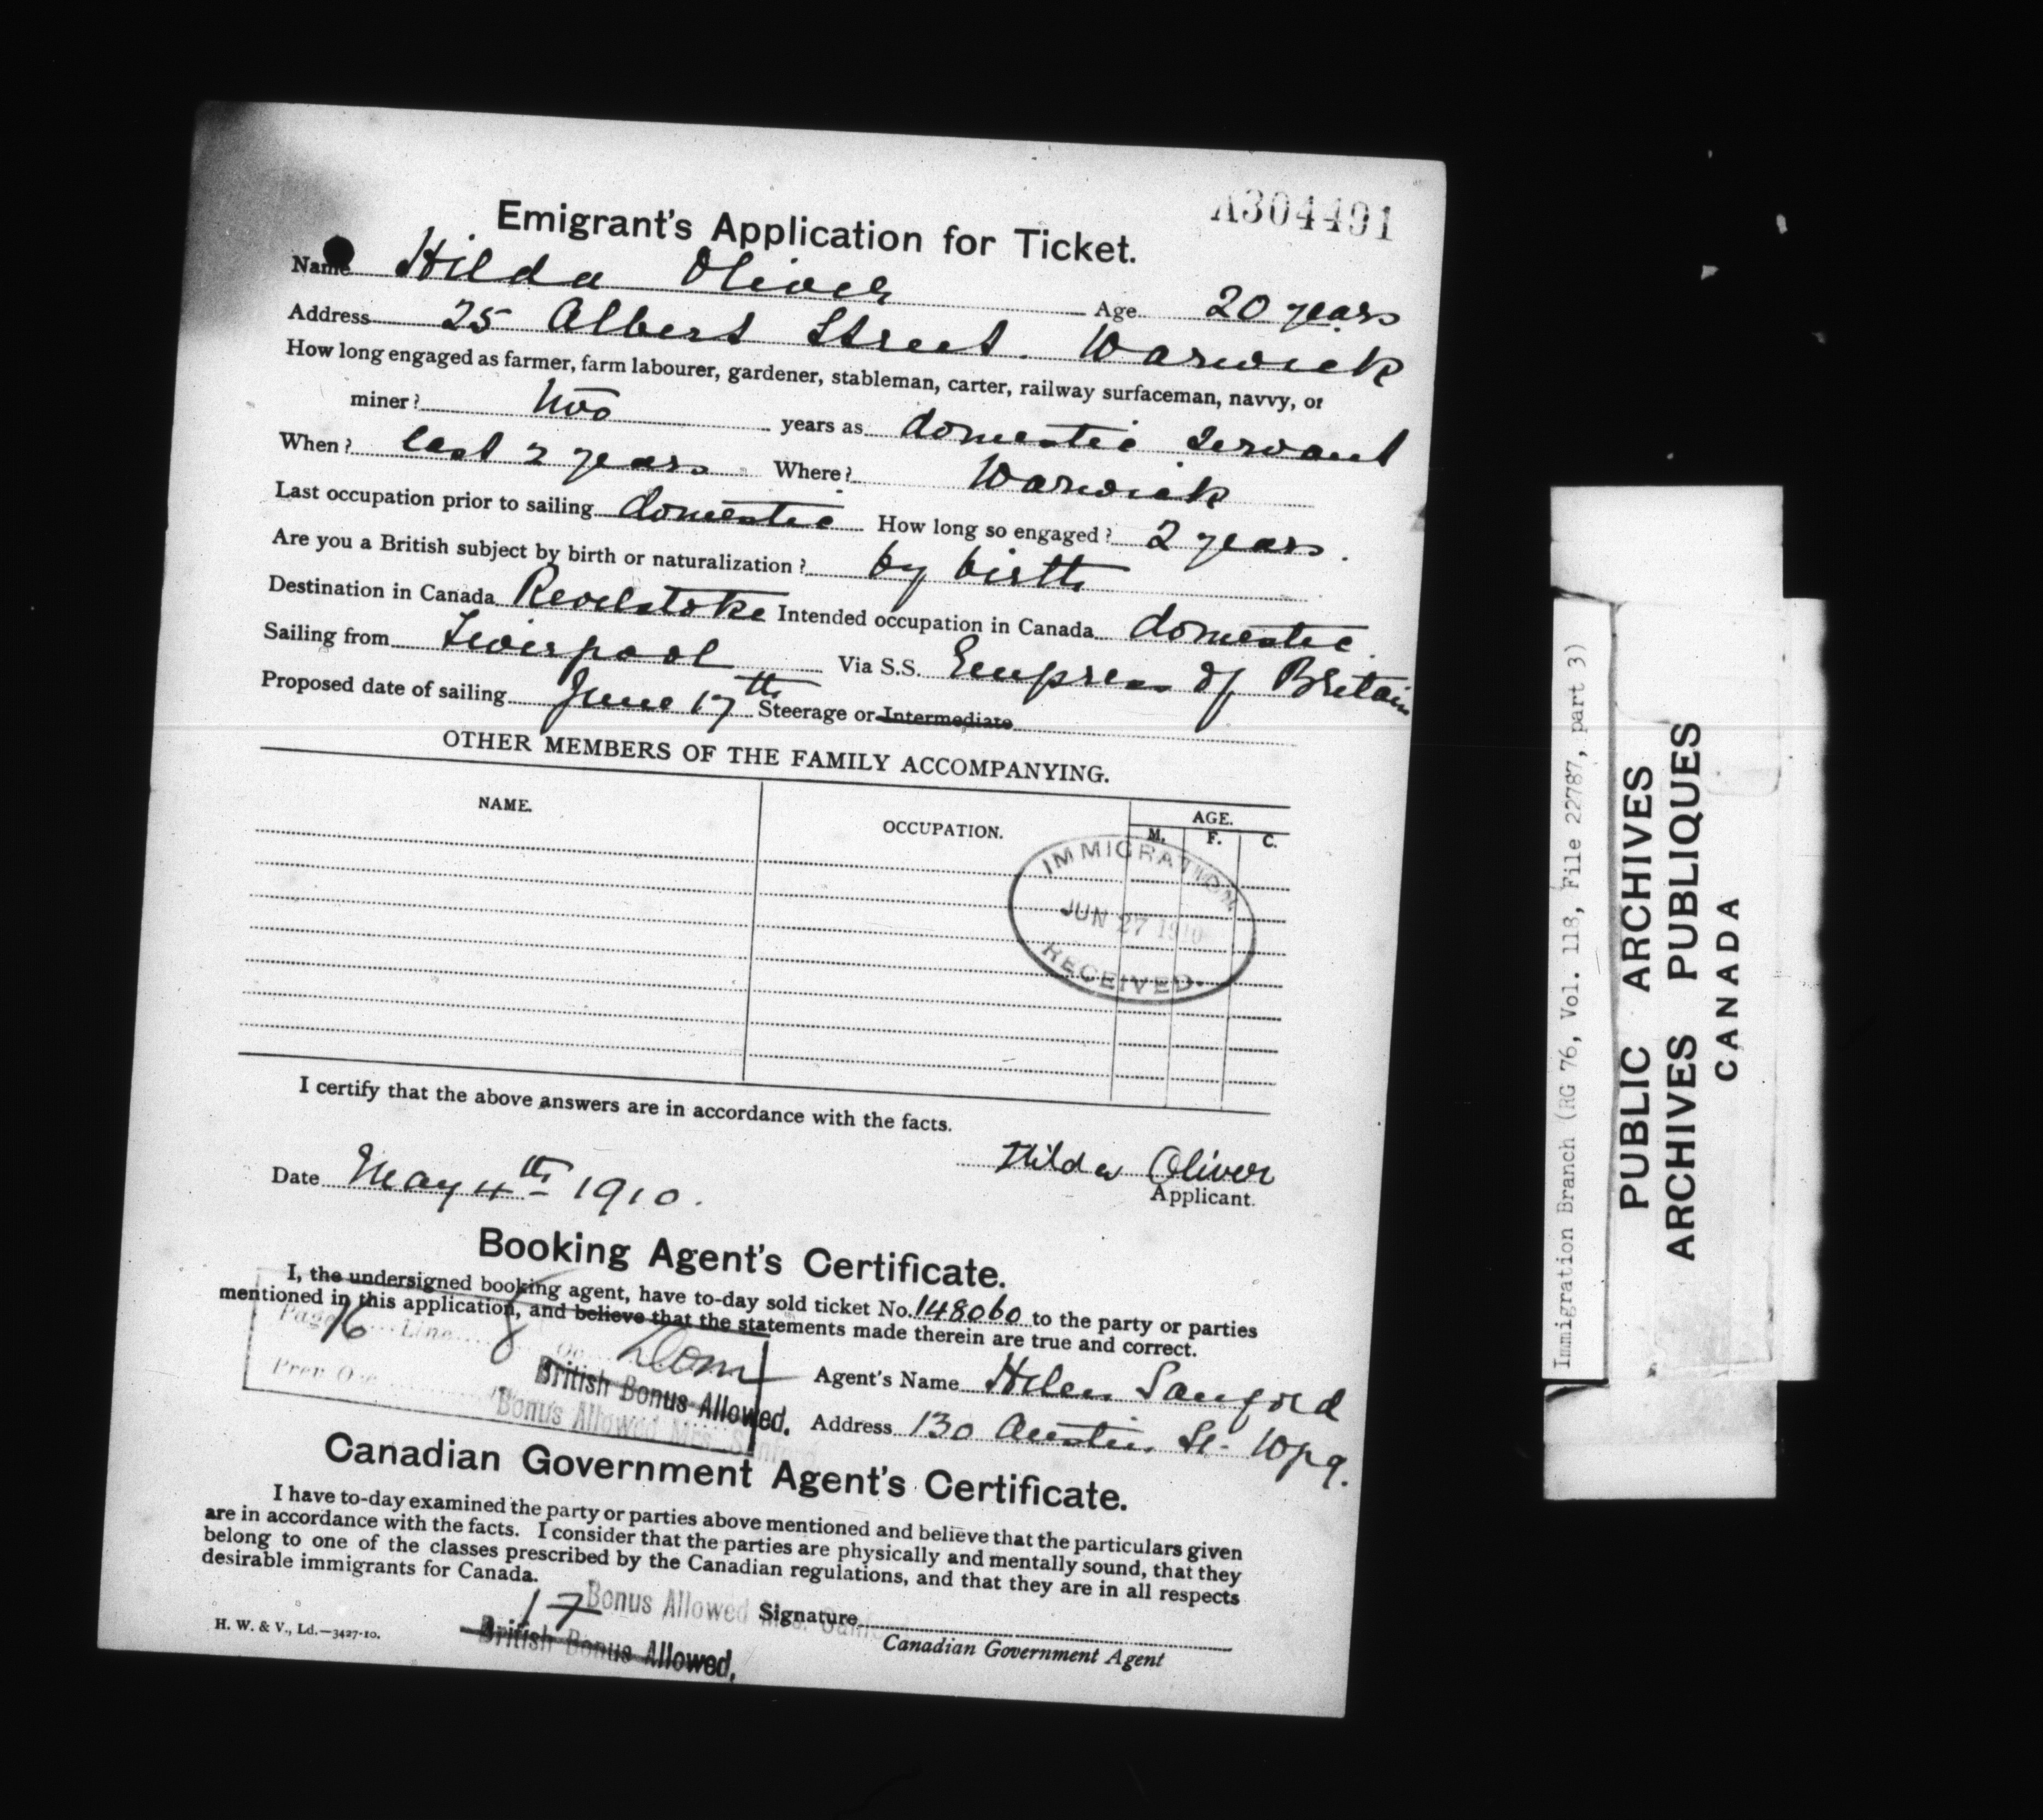 A304491
Emigrant's Application for Ticket.
Name Hilda Oliver Age 20 years
Address 25 Albert Street. Warwick
How long engaged as farmer, farm labourer, gardener, stableman, carter, railway surfaceman, navvy, or
miner? two years as domestic servant
When? last 2 years Where? Warwick
Last occupation prior to sailing domestic How long so engaged? 2 years.
Are you a British subject by birth or naturalization? by birth
Destination in Canada Revelstoke Intended occupation in Canada domestic
Sailing from Liverpool Via S.S. Empress of Britain
Proposed date of sailing June 17th Steerage or Intermediate
OTHER MEMBERS OF THE FAMILY ACCOMPANYING.
NAME. OCCUPATION. AGE.
M. F. C.
IMMIGRATION
JUN 27 1910
RECEIVED.
I certify that the above answers are in accordance with the facts.
Hilda Oliver
Date May 4th 1910. Applicant.
Booking Agent's Certificate.
I, the undersigned booking agent, have to-day sold ticket No. 148060 to the party or parties
mentioned in this application, and believe that the statements made therein are true and correct.
Page 16 Line 8 Oc Dom
Prev Occ
British Bonus Allowed.
Bonus Allowed Mrs. Sanford
Agent's Name Helen Sanford
Address 130 Austin St. Wpg.
Canadian Government Agent's Certificate.
I have to-day examined the party or parties above mentioned and believe that the particulars given
are in accordance with the facts. I consider that the parties are physically and mentally sound, that they
belong to one of the classes prescribed by the Canadian regulations, and that they are in all respects
desirable immigrants for Canada.
17 Bonus Allowed Mrs. Sanford
Signature
Canadian Government Agent
H. W. & V., Ld.—3427-10.
British Bonus Allowed.
Immigration Branch (RG 76, Vol. 118, File 22787, part 3)
PUBLIC ARCHIVES
ARCHIVES PUBLIQUES
CANADA